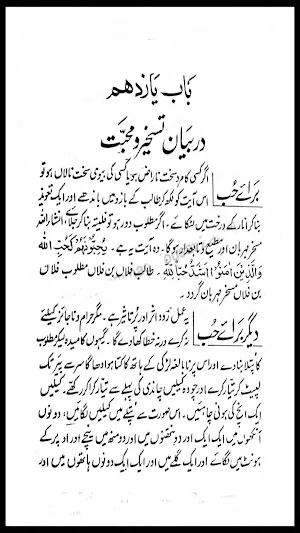 باب یازدهم
در بیان تسخیر و محبت
برائے حُب اگر کسی کا مرد سخت ناراض ہو یا کسی کی بیوی سخت نالاں ہو تو
اس آیت کو لکھ کر طالب کے بازو میں باندھے اور ایک تعویذ
بنا کر انار کے درخت میں لٹکائے۔ اگر مطلوب دور ہو تو فلیتہ بنا کر جلائے، انشاء اللہ
مسخر مہربان اور مطیع و تابعدار ہوگا۔ وہ آیت یہ ہے۔ يُحِبُّونَهُمْ كَحُبِّ اللهِ
وَالَّذِينَ اٰمَنُوْا اَشَدُّ حُبًّا لِلّٰهِ۔ طالب فلاں بن فلاں مطلوب فلاں
بن فلاں مسخر مہربان گردد۔
دیگر برائے حُب یہ عمل زود اثر اور پُر تاثیر ہے۔ مگر حرام و ناجائز کیلئے
نہ کرے ورنہ خطا کھاوے گا۔ گیہوں کا میدہ لیکر مطلوب
کا پُتلا بنا دے اور اس پر نابالغہ لڑکی کے ہاتھ کا کتا ہوا دھاگا سر سے پیر تک
لپیٹ کر تیار کرے اور چودہ کیلیں چاندی کی پہلے سے تیار کرا کر رکھے۔ کیلیں
ایک انچ کی ہونی چاہئیں۔ اس صورت سے پُتلے میں کیلیں لگائیں، دونوں
آنکھوں میں ایک ایک اور دو نتھنوں میں اور دو منھ میں نیچے اور اوپر کے
ہونٹ میں لگائے اور ایک گلے میں اور ایک ایک دونوں ہاتھوں میں اور